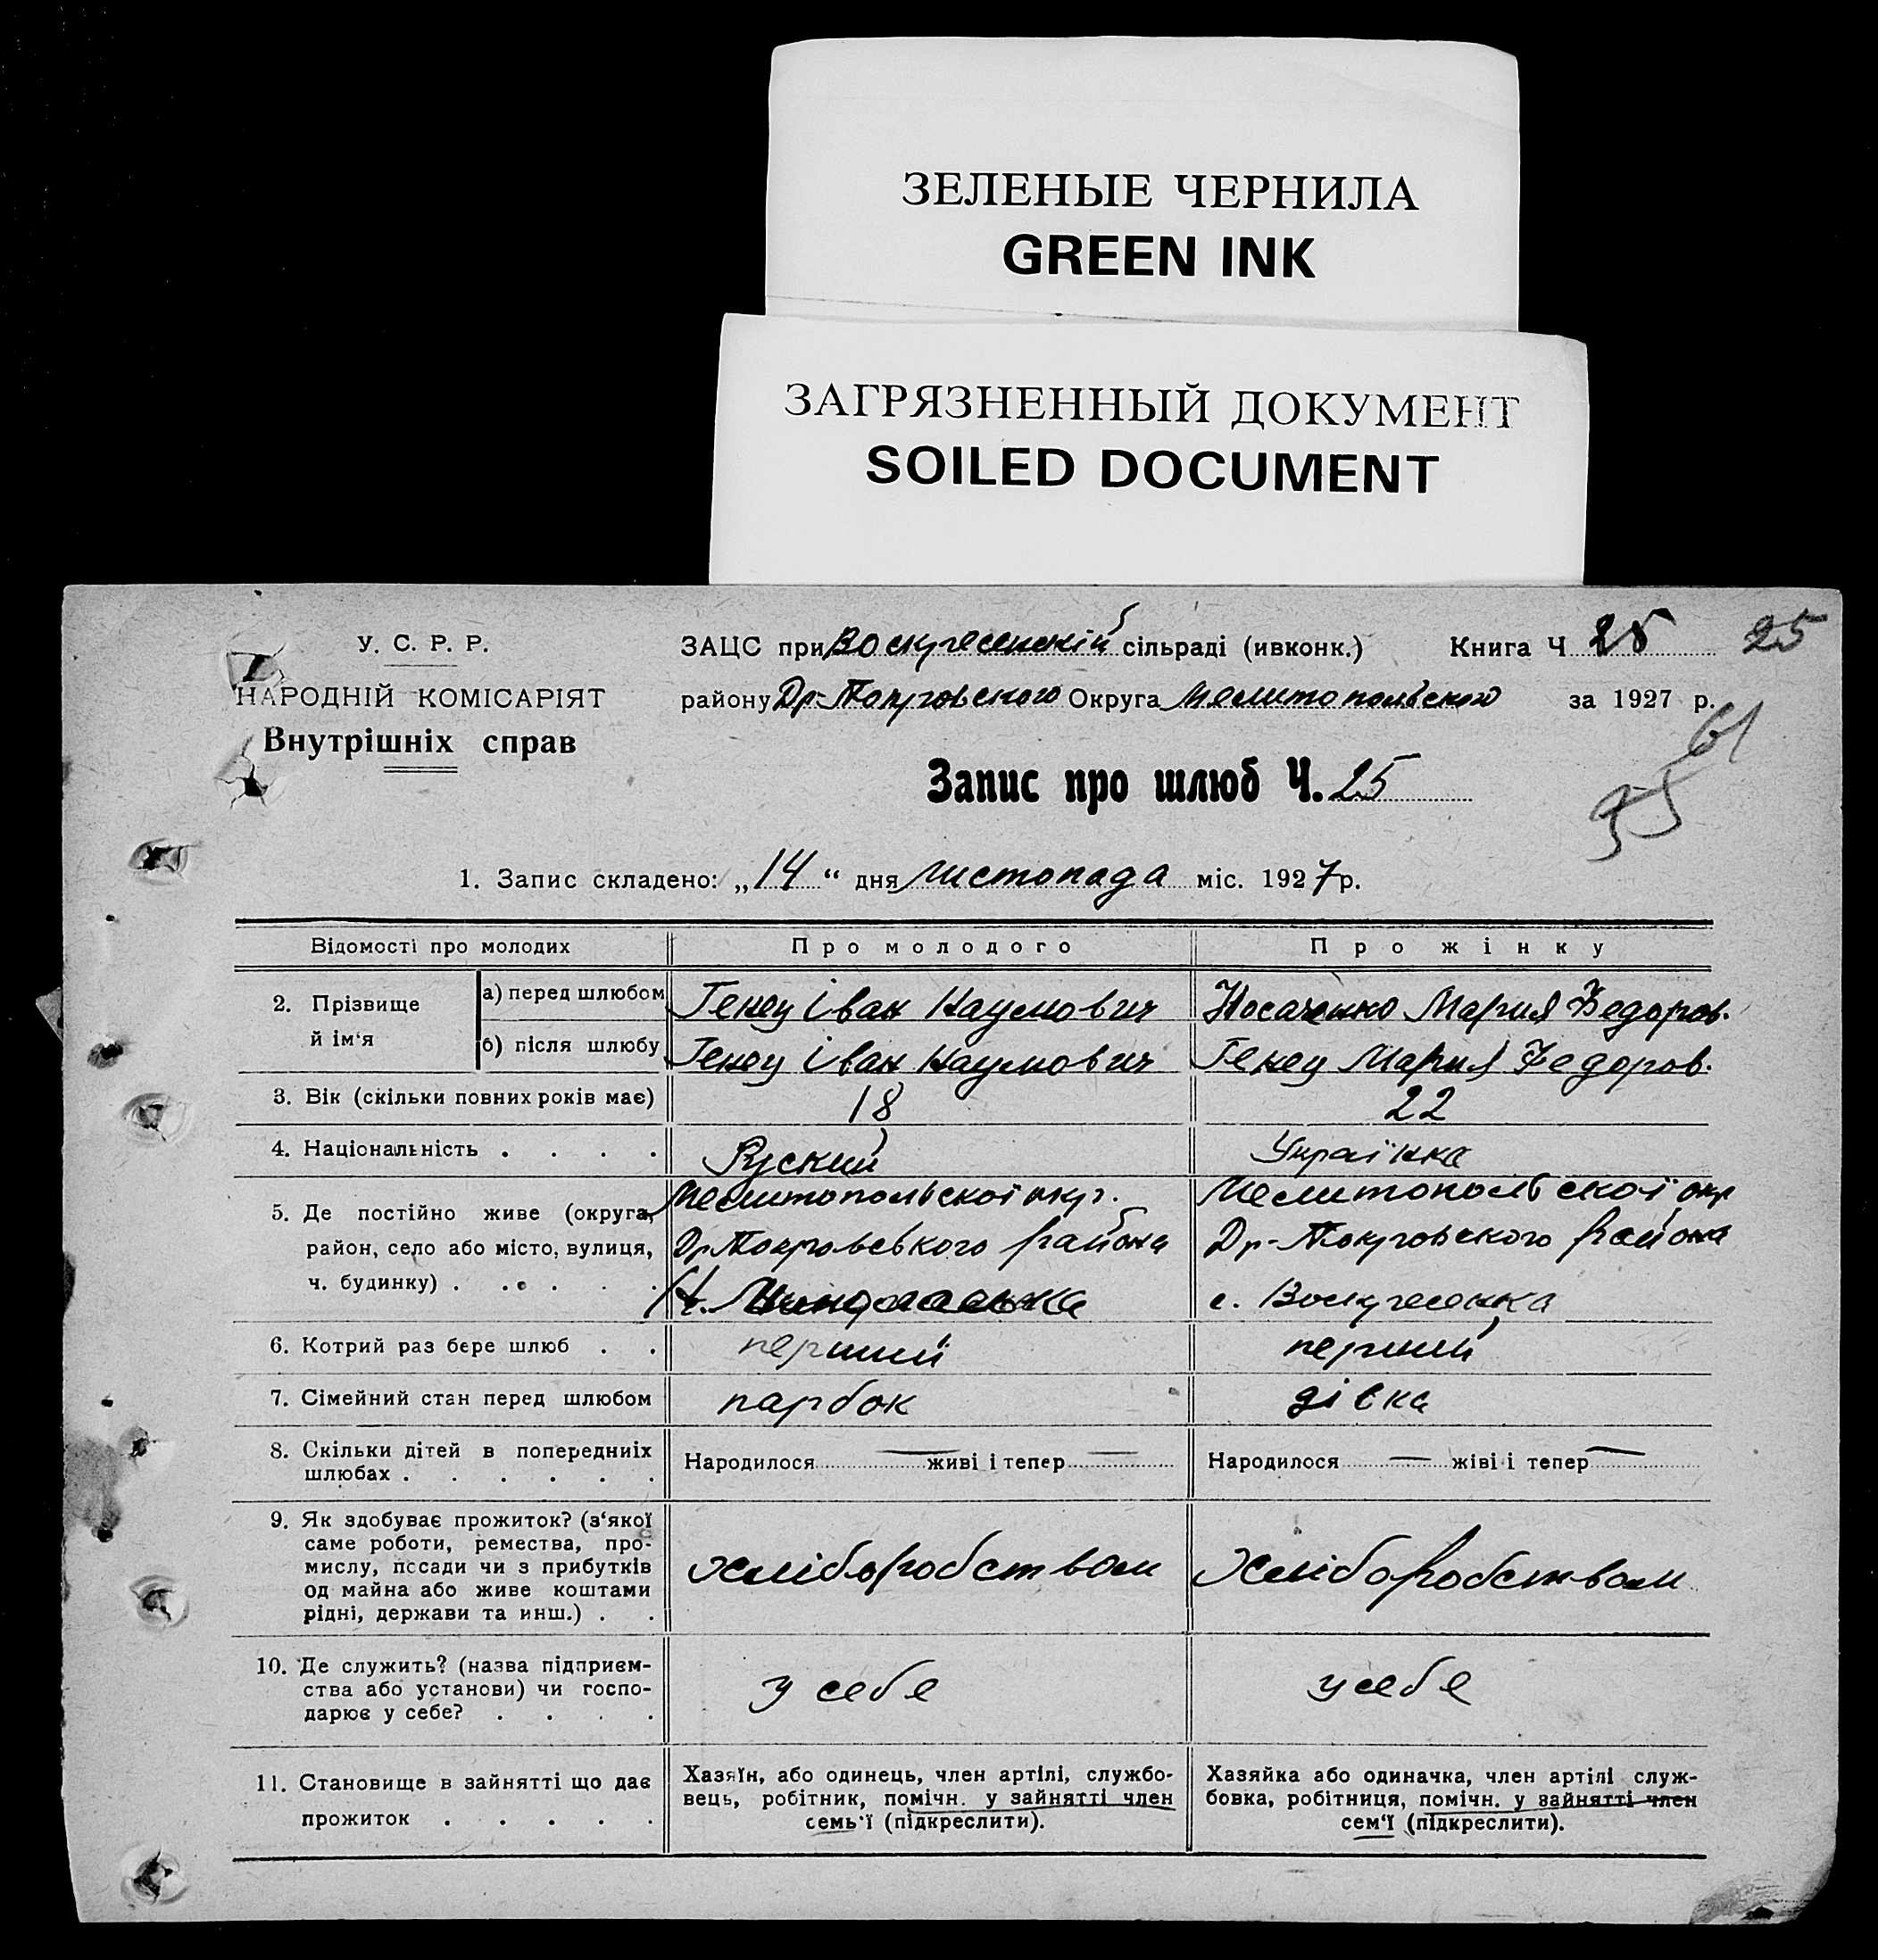 ЗЕЛЕНЫЕ ЧЕРНИЛА
GREEN INK
ЗАГРЯЗНЕННЫЙ ДОКУМЕНТ
SOILED DOCUMENT
У. С. Р. Р.
НАРОДНІЙ КОМІСАРІЯТ
Внутрішніх справ
ЗАЦС при Воскресенскій сільраді (ивконк.) Книга Ч 25 25
району Др-Покровского Округа Мелитопольского за 1927 р.
61
55
Запис про шлюб Ч. 25
1. Запис складено: „14“ дня листопада міс. 1927 р.
Відомості про молодих Про молодого Про жінку
2. Прізвище й ім‘я
а) перед шлюбом Генец Іван Наумович Носаченко Мария Федоров.
б) після шлюбу Генец Іван Наумович Генец Мария Федоров.
3. Вік (скільки повних років має) 18 22
4. Національність . . . . Руский Українка
5. Де постійно живе (округа, район, село або місто, вулиця, ч. будинку) . . . . .
Мелитопольскої окр. Мелитопольскої окр
Др Покровського района Др-Покровского района
с. с. Воскресенка
6. Котрий раз бере шлюб . . перший перший
7. Сімейний стан перед шлюбом парбок дівка
8. Скільки дітей в попередниіх шлюбах . . . . . .
Народилося — живі і тепер — Народилося — жіві і тепер —
9. Як здобуває прожиток? (з‘якої
саме роботи, ремества, про-
мислу, пссади чи з прибутків
од майна або живе коштами
рідні, держави та инш.) . .
хліборобством Хліборобством
10. Де служить? (назва підприєм-
ства або установи) чи госпо-
дарює у себе? . . . .
у себе у себе
11. Становище в зайнятті що дає
прожиток . . . . .
Хазяїн, або одинець, член артілі, службо-
вець, робітник, помічн. у зайнятті член
семь‘ї (підкреслити).
Хазяйка або одиначка, член артілі служ-
бовка, робітниця, помічн. у зайнятті член
сем‘ї (підкреслити).